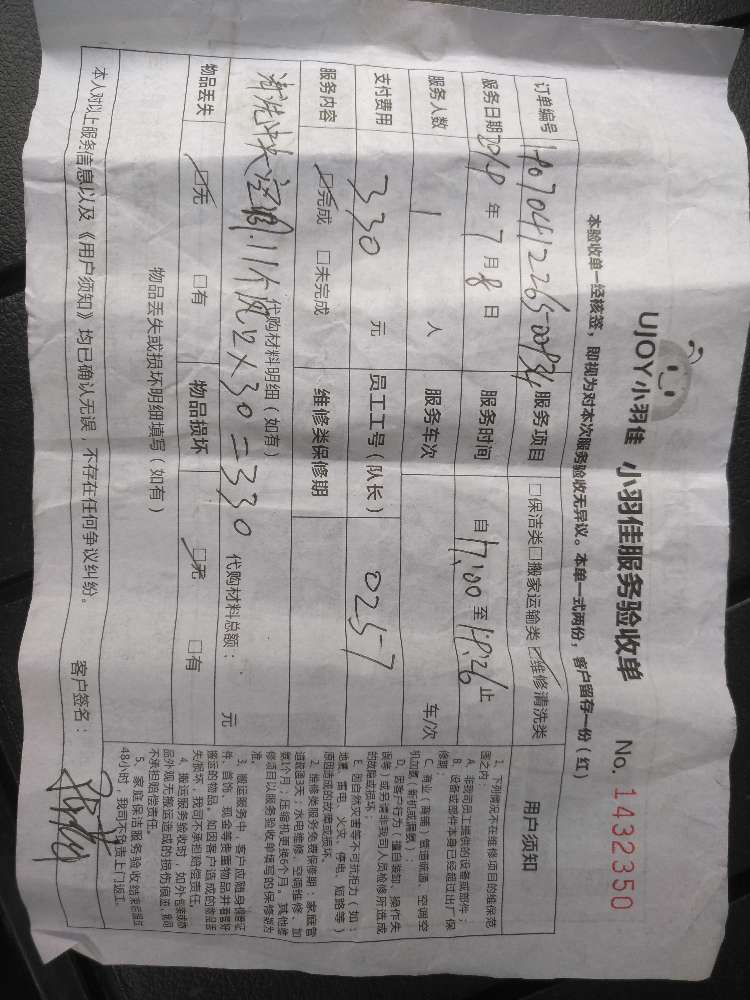 UJOY小羽佳 小羽佳服务验收单 No. 1432350
本验收单一经核签，即视为对本次服务验收无异议。本单一式两份，客户留存一份（红）
订单编号 服务项目 □保洁类□搬家运输类☑维修清洗类
服务日期 2018 年 7 月 8 日 服务时间 自 17:00 至 18:26 止
服务人数 1 人 服务车次 车/次
支付费用 330 元 员工工号（队长） 0257
服务内容 ☑完成 □未完成 维修类保修期
代购材料明细（如有）
清洗中央空调.11个风口×30=330 代购材料总额： 元
物品丢失 ☑无 □有 物品损坏 ☑无 □有
物品丢失或损坏明细填写（如有）
本人对以上服务信息以及《用户须知》均已确认无误，不存在任何争议纠纷。 客户签名：
用户须知
1、下列情况不在维修项目的维保范
围之内：
A、非我司员工提供的设备或部件；
B、设备或部件本身已经超过出厂保
修期；
C、商业（商铺）管道疏通、空调空
机加氟（新机或漏氟）；
D、因客户行为（擅自装卸、操作失
误等）或另请非我司人员检修所造成
的故障或损坏；
E、因自然灾害等不可抗拒力（如：
地震、雷电、火灾、停电、短路等）
原因造成的故障或损坏。
2、维修类服务免费保修期：家庭管
道疏通3天；水电维修、空调维修、加
氟1个月；压缩机更换6个月。其他维
修项目以服务验收单填写的保修期为
准。
3、搬运服务中，客户应随身携带证
件、首饰、现金等贵重物品并看管好
搬运的物品。如因客户造成的物品丢
失/损坏，我司不承担赔偿责任。
4、搬运服务验收时，如外包装或物
品外观无搬运造成的损伤痕迹，我司
不承担赔偿责任。
5、家庭保洁服务验收结束后超过
48小时，我司不负责上门返工。